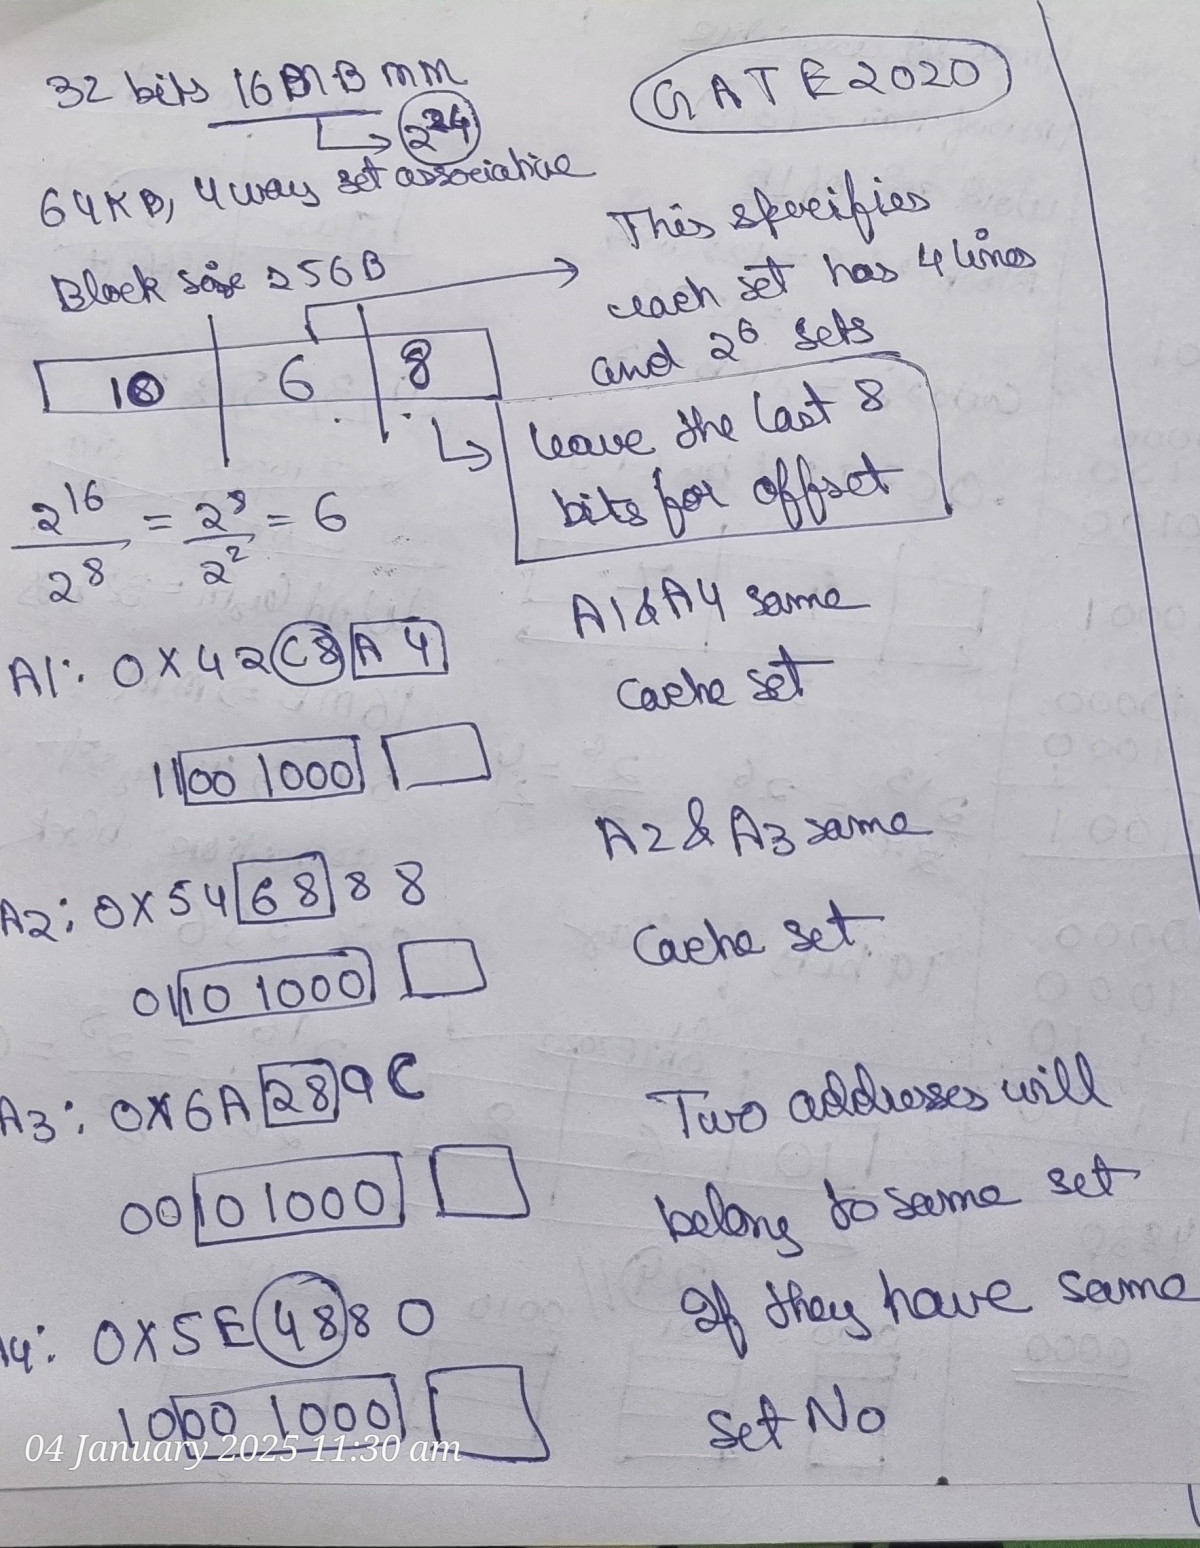 32 bits 16MB MM
2^24
GATE 2020
64KB, 4 way set associative
Block size 256B
This specifies
each set has 4 lines
and 2^6 sets
10 6 8
leave the last 8
bits for offset
2^16 / 2^8 = 2^8 / 2^2 = 6
A1: 0X42C8A4
1100 1000
A1 & A4 same
Cache set
A2: 0X546888
0110 1000
A2 & A3 same
Cache set
A3: 0X6A289C
0010 1000
A4: 0X5E4880
1000 1000
Two addresses will
belong to same set
If they have same
set No
04 January 2025 11:30 am